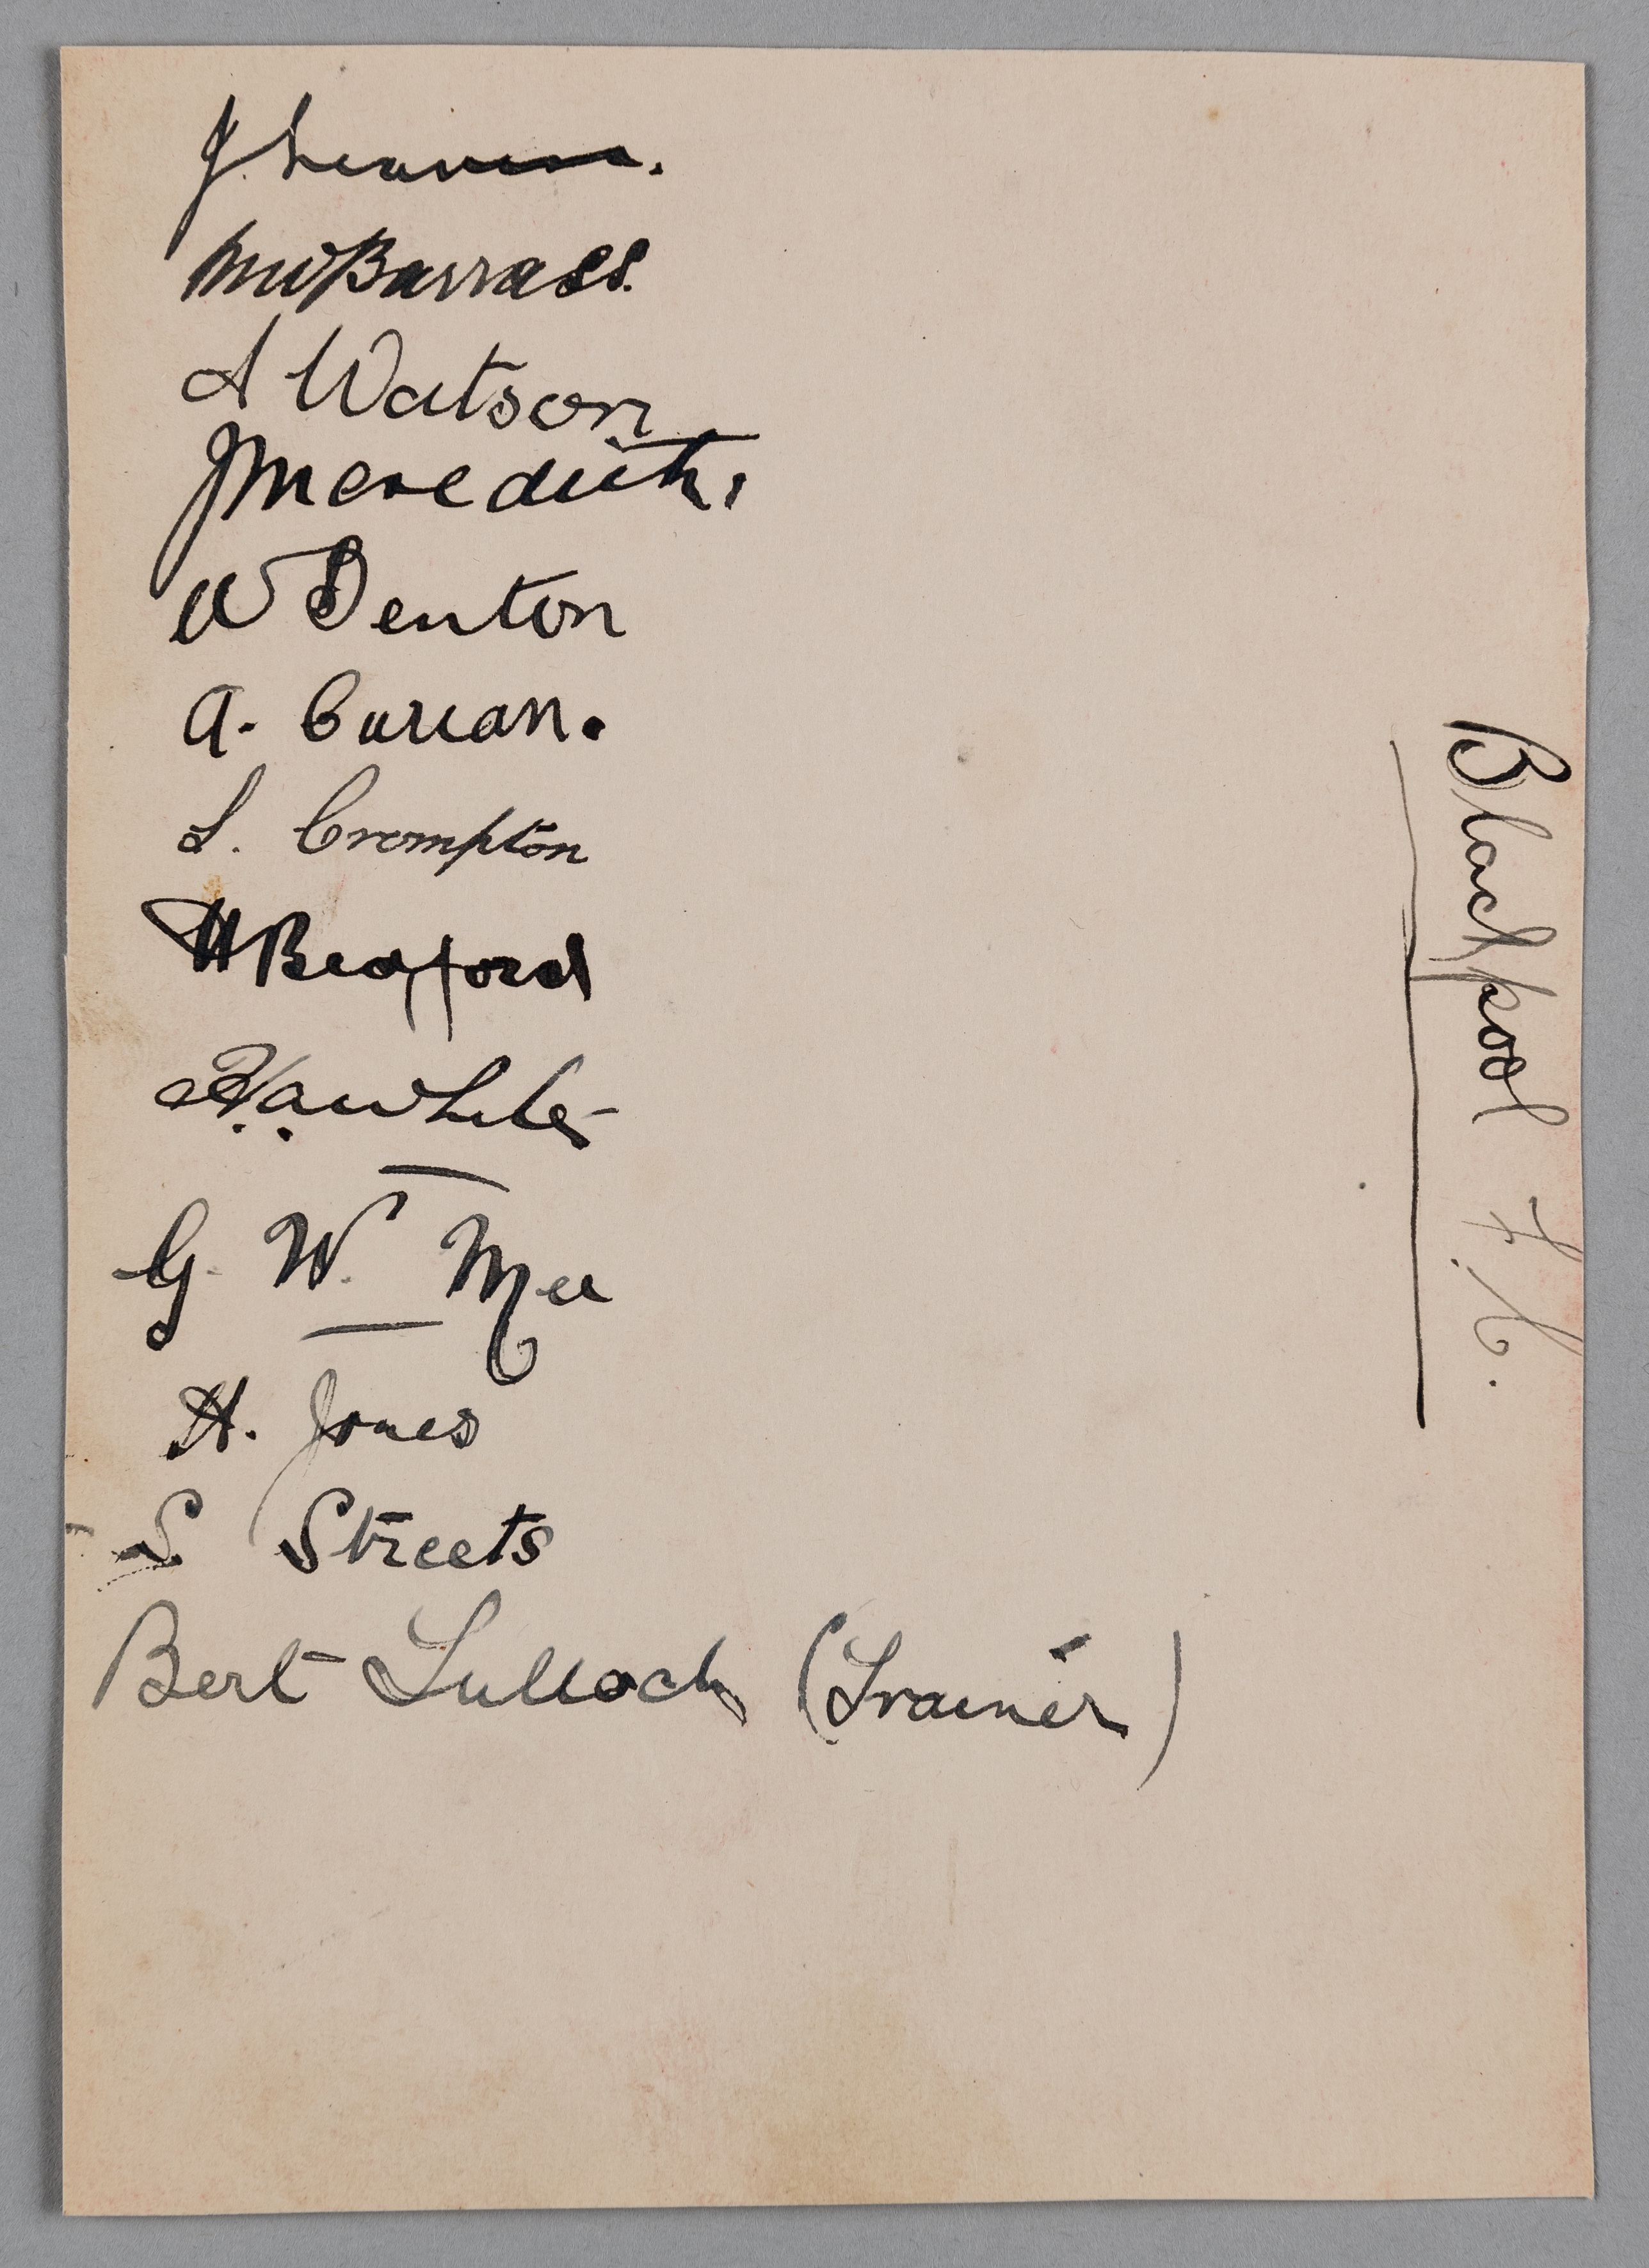 J
MWBarrass.
A Watson
J Meredith.
W Benton
A. Curran.
L. Crompton
H Bedford
H.A. White
G. W. Mee
H. Jones
S Streets
Bert Tulloch (Trainer)
Blackpool F.C.